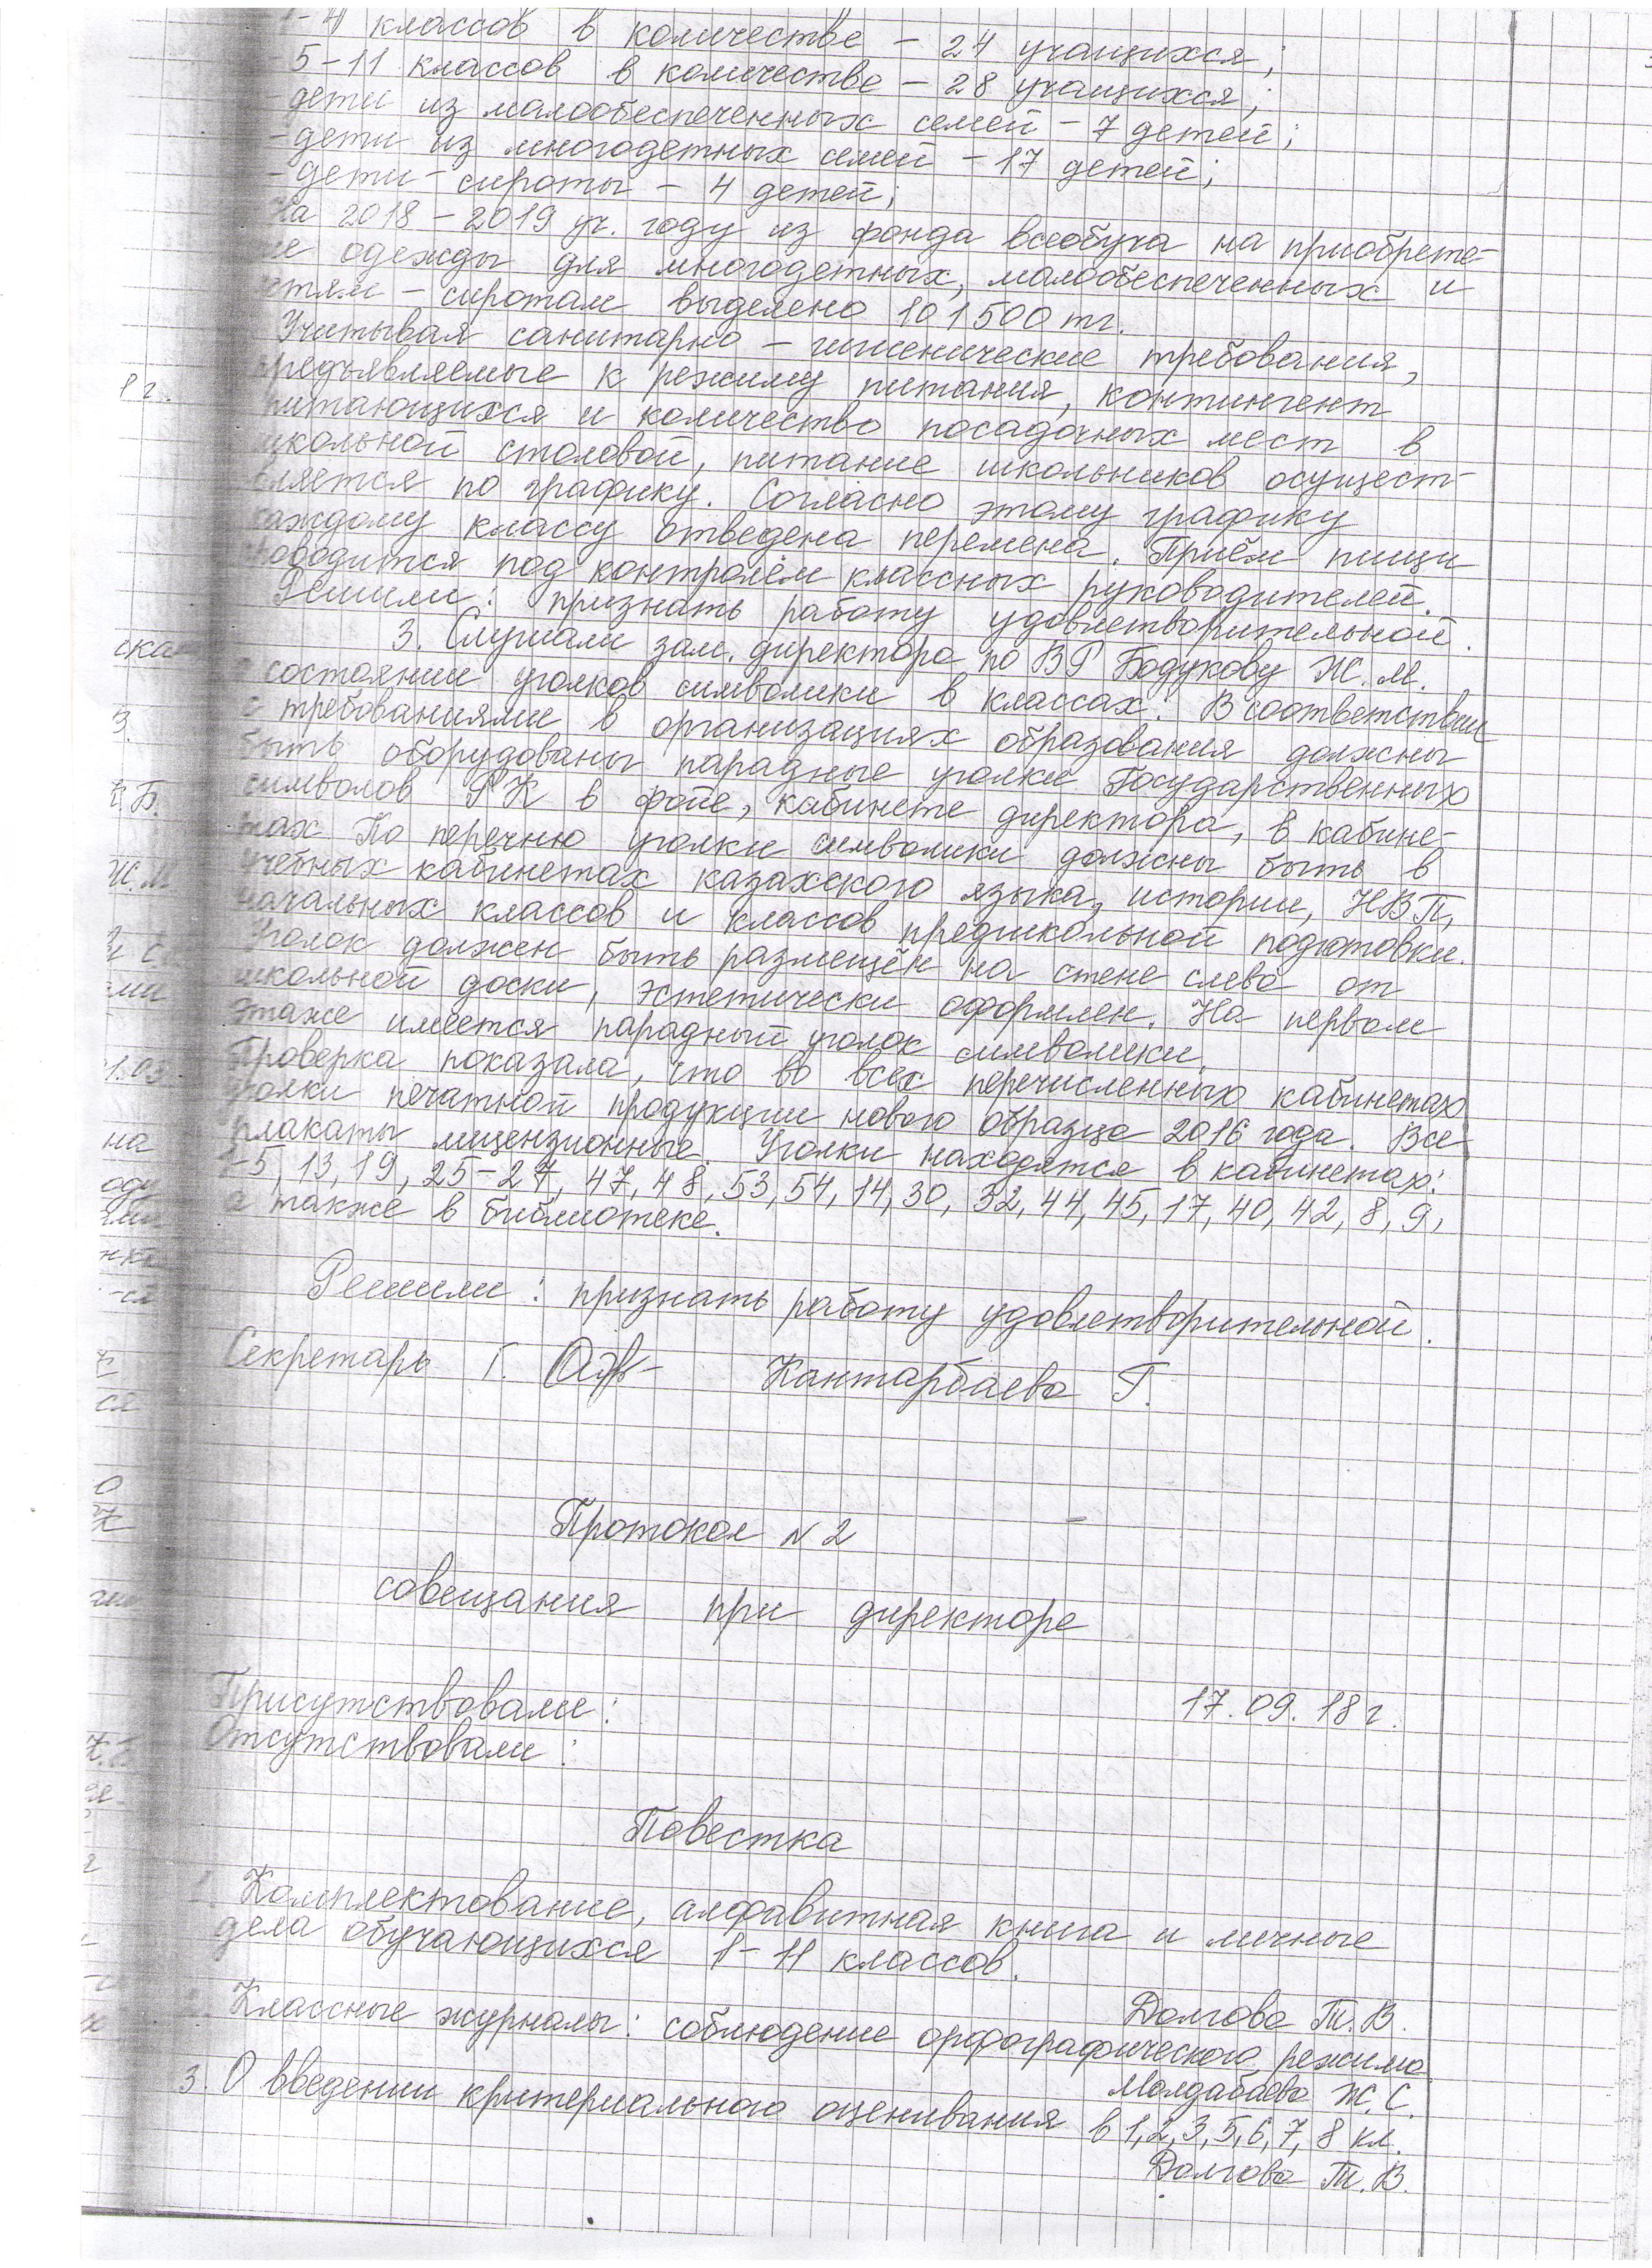 1-4 классов в количестве - 24 учащихся;
- 5-11 классов в количестве - 28 учащихся;
- дети из малообеспеченных семей - 7 детей;
- дети из многодетных семей - 17 детей;
- дети-сироты - 4 детей;
На 2018-2019 уч. году из фонда всеобуча на приобрете-
ие одежды для многодетных, малообеспеченных и
етям - сиротам выделено 101500 тг.
Учитывая санитарно - гигиенические требования,
предъявляемые к режиму питания, контингент
питающихся и количество посадочных мест в
школьной столовой, питание школьников осущест-
вляется по графику. Согласно этому графику
каждому классу отведена перемена. Приём пищи
проводится под контролем классных руководителей.
Решили: признать работу удовлетворительной.
3. Слушали зам. директора по ВР Бодукову Ж. М.
о состоянии уголков символики в классах. В соответствии
с требованиями в организациях образования должны
быть оборудованы парадные уголки Государственных
символов РК в фойе, кабинете директора, в кабине-
тах По перечню уголки символики должны быть в
учебных кабинетах казахского языка, истории, НВП,
начальных классов и классов предшкольной подготовки.
Уголок должен быть размещён на стене слева от
школьной доски, эстетически оформлен. На первом
этаже имеется парадный уголок символики.
Проверка показала, что во всех перечисленных кабинетах
уголки печатной продукции нового образца 2016 года. Все
плакаты лицензионные. Уголки находятся в кабинетах:
1-5, 13, 19, 25-27, 47, 48, 53, 54, 14, 30, 32, 44, 45, 17, 40, 42, 8, 9,
а также в библиотеке.
Решили: признать работу удовлетворительной.
Секретарь Г. Кантарбаева Г.
Протокол N 2
совещания при директоре
17.09.18 г.
Присутствовали:
Отсутствовали:
Повестка
1. Комплектование, алфавитная книга и личные
дела обучающихся 1-11 классов.
Долгова Т. В.
2. Классные журналы: соблюдение орфографического режима
Молдабаева Ж. С.
3. О введении критериального оценивания в 1, 2, 3, 5, 6, 7, 8 кл.
Долгова Т. В.